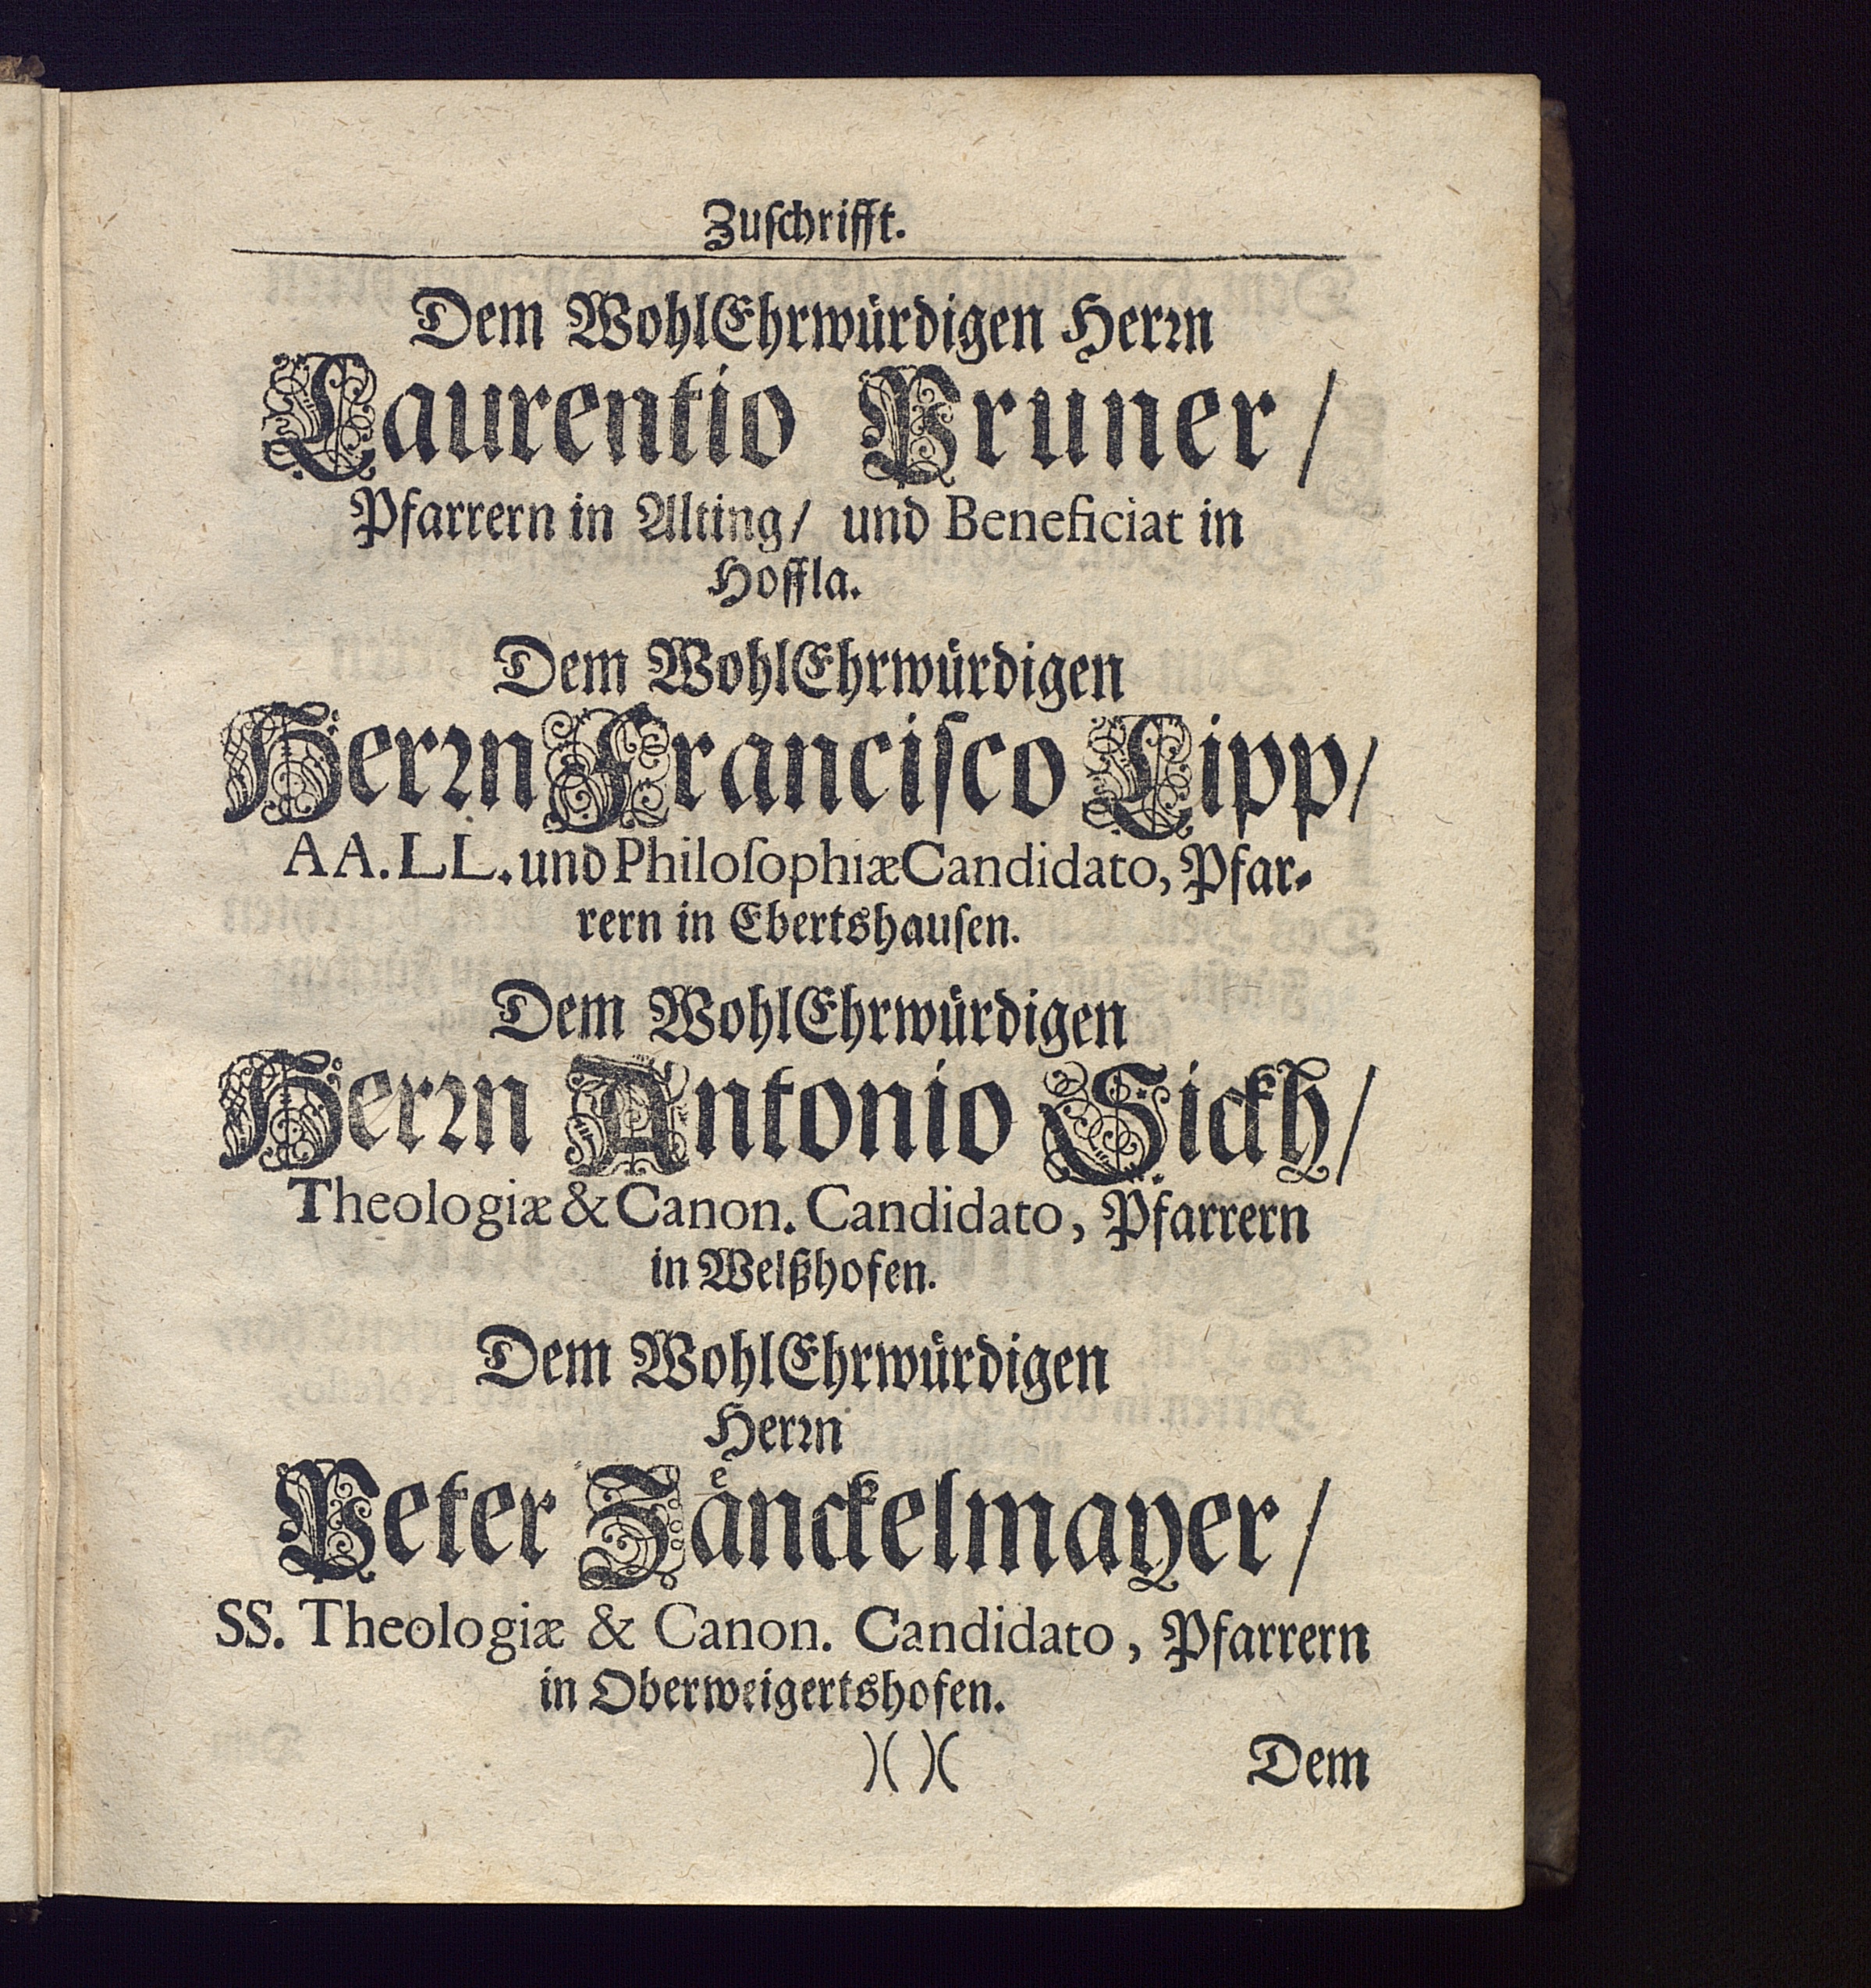 Zuſchrifft.
Dem WohlEhrwürdigen Herꝛn
Laurentio Pruner /
Pfarrern in Alting / und Beneficiat in
Hoffla.
Dem WohlEhrwürdigen
Herꝛn Franciſco Lipp /
AA. LL. und Philoſophiæ Candidato, Pfar⸗
rern in Ebertshauſen.
Dem WohlEhrwürdigen
Herꝛn Antonio Sickh /
Theologiæ & Canon. Candidato, Pfarrern
in Welßhofen.
Dem WohlEhrwürdigen
Herꝛn
Peter Zaͤnckelmayer /
SS. Theologiæ & Canon. Candidato, Pfarrern
in Oberweigertshofen.
)( )( Dem